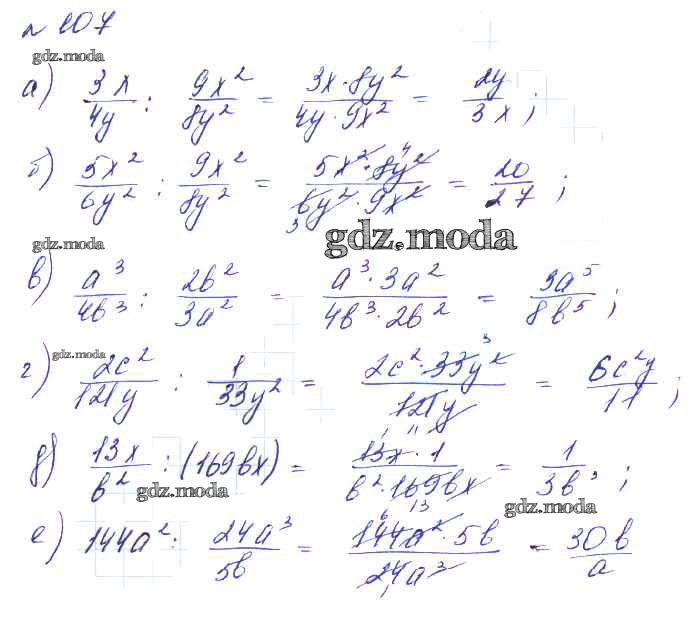 № 107
gdz.moda
а) 3x/4y : 9x²/8y² = 3x·8y²/4y·9x² = 2y/3x ;
б) 5x²/6y² : 9x²/8y² = 5x²·8y² 4/6y²·9x² 3 = 20/27 ;
gdz.moda
gdz.moda
в) a³/4b³ : 2b²/3a² = a³·3a²/4b³·2b² = 3a⁵/8b⁵ ;
gdz.moda
г) 2c²/121y : 1/33y² = 2c²·33y² 3/121y 1 11 = 6c²y/11 ;
д) 13x/b² : (169bx) = 13x·1/b²·169bx 13 = 1/3b³ ;
gdz.moda
gdz.moda
е) 144a² : 24a³/5b = 6 144a²·5b/24a³ 1 = 30b/a